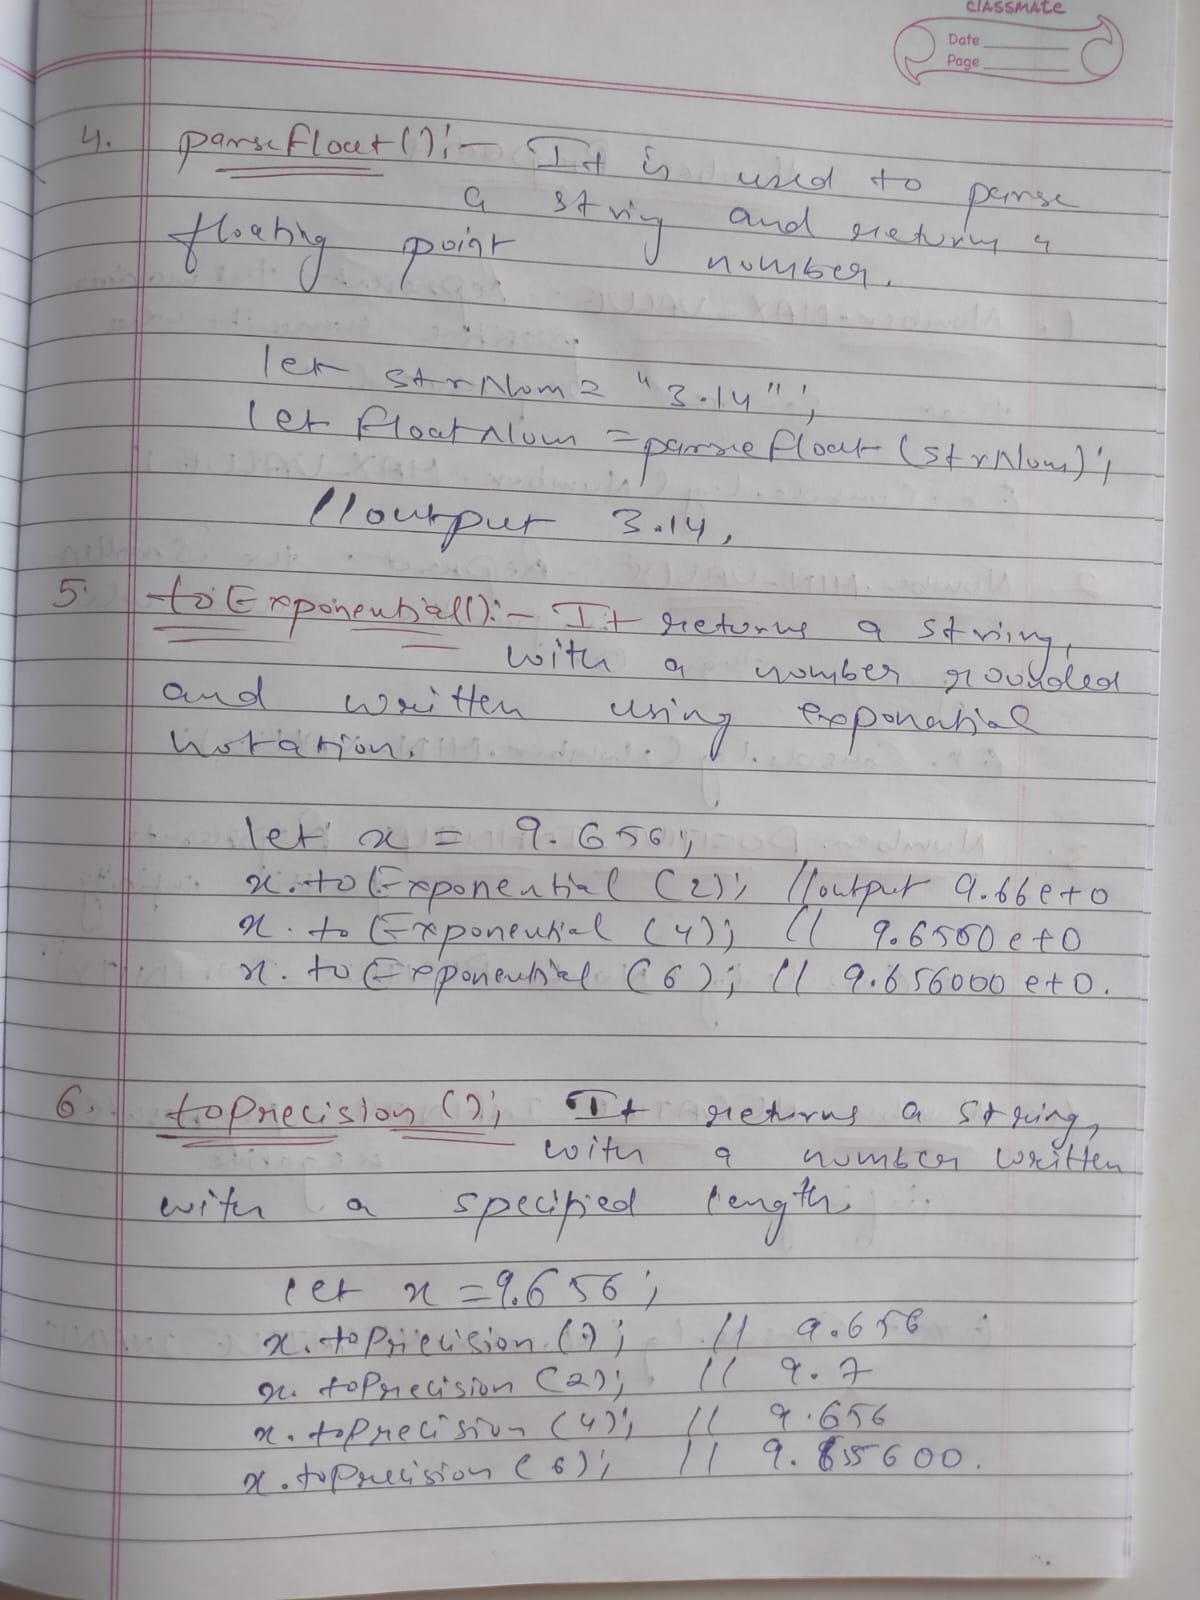 classmate
Date
Page
4. parsefloat():- It is used to parse
a string and return a
floating point number.
let strNum = "3.14";
let floatNum = parsefloat(strNum);
//output 3.14,
5. toExponential():- It returns a string,
with a number rounded
and written using exponatial
notation.
let x = 9.656;
x.toExponential(2); //output 9.66e+0
x.toExponential(4); // 9.6560e+0
x.toExponential(6); // 9.656000e+0.
6. toPrecision(); It returns a string,
with a number written
with a specified length.
let x = 9.656;
x.toPrecision(); // 9.656
x.toPrecision(2); // 9.7
x.toPrecision(4); // 9.656
x.toPrecision(6); // 9.65600.